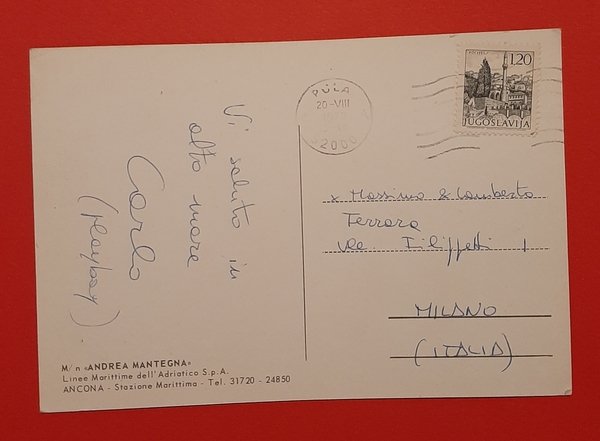 Vi saluto in
alto mare
Carlo
(Playboy)
PULA
20-VIII
2000
1,20
JUGOSLAVIJA
x Massimo & Lamberto
Ferrara
Vle. Filippetti 1
MILANO
(ITALIA)
M/n «ANDREA MANTEGNA»
Linee Marittime dell'Adriatico S.p.A.
ANCONA - Stazione Marittima - Tel. 31720 - 24850